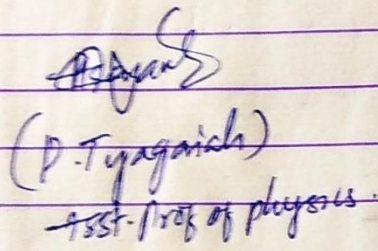 (P. Tyagaiah)
Asst. Prof of physics.